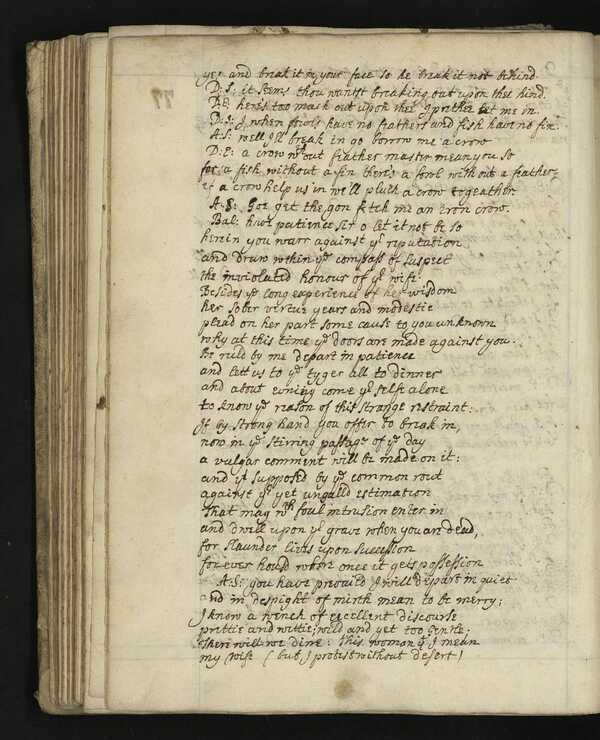 yes and break it in your face so he break it not behind
D: S: it seems thou wantst breaking out upon thee hind.
D: E: heres too much out upon thee I prethee let me in.
D: S: I when fowls have no feathers and fish have no fin.
A: S: well Ile break in go borrow me a crow
D: E: a crow wthout feather master mean you so
for a fish without a fin there's a fowl without a feather,
if a crow help us in we'll pluck a crow togeather
A: E: Goe get the gon fetch me an iron crow.
Bal: have patience Sir o let it not be so
herein you warr against yr reputation
and draw within ye compass of suspect
the inviolated honour of yr wife.
Besides ye long experience of her wisdom
her sober vertue years and modestie
plead on her part some cause to you unknown
why at this time ye doors are made against you.
Be ruld by me depart in patience
and lett us to ye tyger all to dinner
and about evning come yr selfe alone
to know ye reason of this strange restraint:
If by strong hand you offer to break in,
now in ye stirring passage of ye day
a vulgar comment will be made on it:
and yt supposed by ye common rout
against yr yet ungalld estimation
that may wth foul intrusion enter in
and dwell upon yr grave when you are dead,
for slaunder lives upon succession
for ever housd where once it gets possession
A: S: you have prevaild I will depart in quiet
and in despight of mirth mean to be merry:
I know a wench of excellent discourse
prettie and wittie; wild and yet too gentle;
there will we dine: this woman yt I mean
my wife (but I protest without desert)